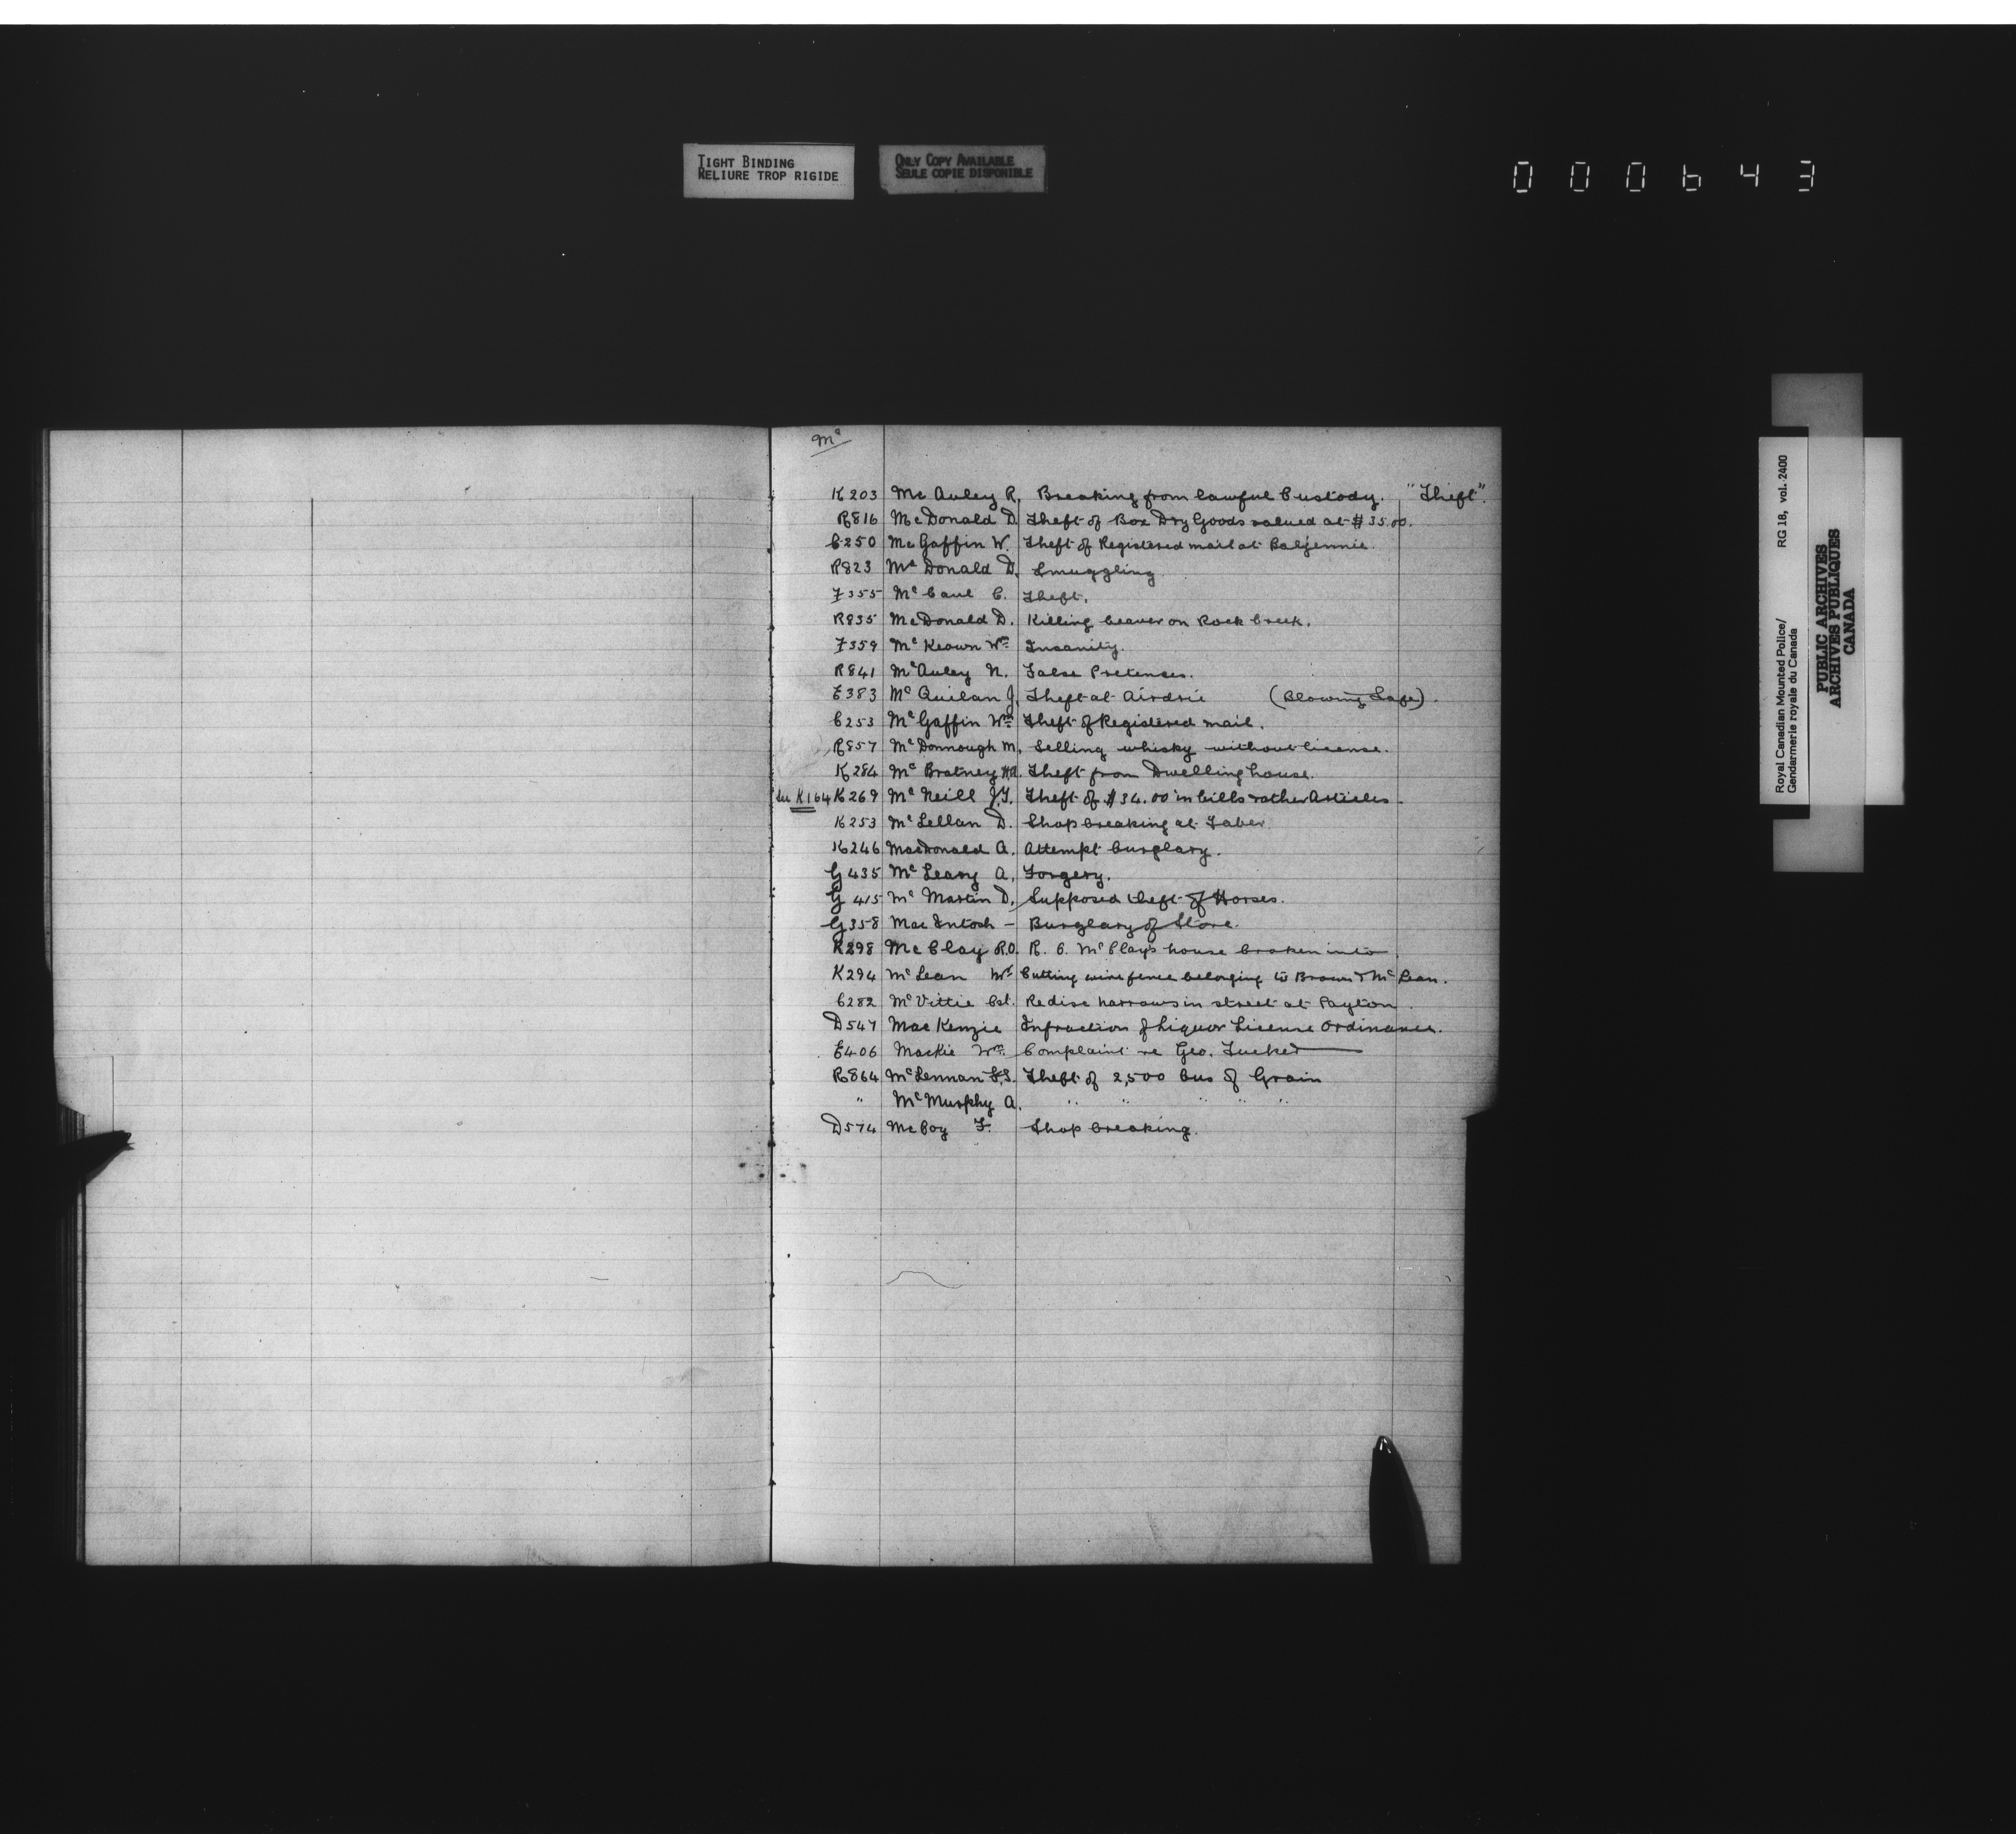 TIGHT BINDING
RELIURE TROP RIGIDE
ONLY COPY AVAILABLE
SEULE COPIE DISPONIBLE
000643
Mc
K203 McAuley R. Breaking from lawful Custody. "Theft".
R816 McDonald D. Theft of Box Dry Goods valued at $35.00.
C250 McGaffin W. Theft of Registered mail at Baljennie.
R823 McDonald D. Smuggling
F355 McCaul C. Theft.
R835 McDonald D. Killing beaver on Rock Creek.
F359 McKeown Wm Insanity.
R841 McAuley N. False Pretenses.
E383 McQuilan J. Theft at Airdrie (Blowing Safe).
C253 McGaffin Wm Theft of Registered mail.
R857 McDonnough M. Selling whisky without license.
K284 McBratney Theft from Dwelling house.
See K164 K269 McNeill J.T. Theft of $34.00 in bills & other Articles.
K253 McLellan D. Shop breaking at Taber.
K246 MacDonald A. Attempt burglary.
G435 McLeary A. Forgery.
G415 McMartin D. Supposed theft of Horses.
G358 MacIntosh - Burglary of Store.
K298 McClay R.O. R. O. McClay's house broken into
K294 McLean Wm Cutting wire fence belonging to Brown & McLean.
C282 McVittie Cst. Re disc harrows in street at Payton.
D547 MacKenzie Infraction of Liquor License Ordinance.
E406 Mackie Wm Complaint re Geo. Tucker
R864 McLennan F.S. Theft of 2,500 bus of Grain
" McMurphy A. " " " " "
D574 McCoy F. Shop breaking.
Royal Canadian Mounted Police/ RG 18, vol. 2400
Gendarmerie royale du Canada
PUBLIC ARCHIVES
ARCHIVES PUBLIQUES
CANADA